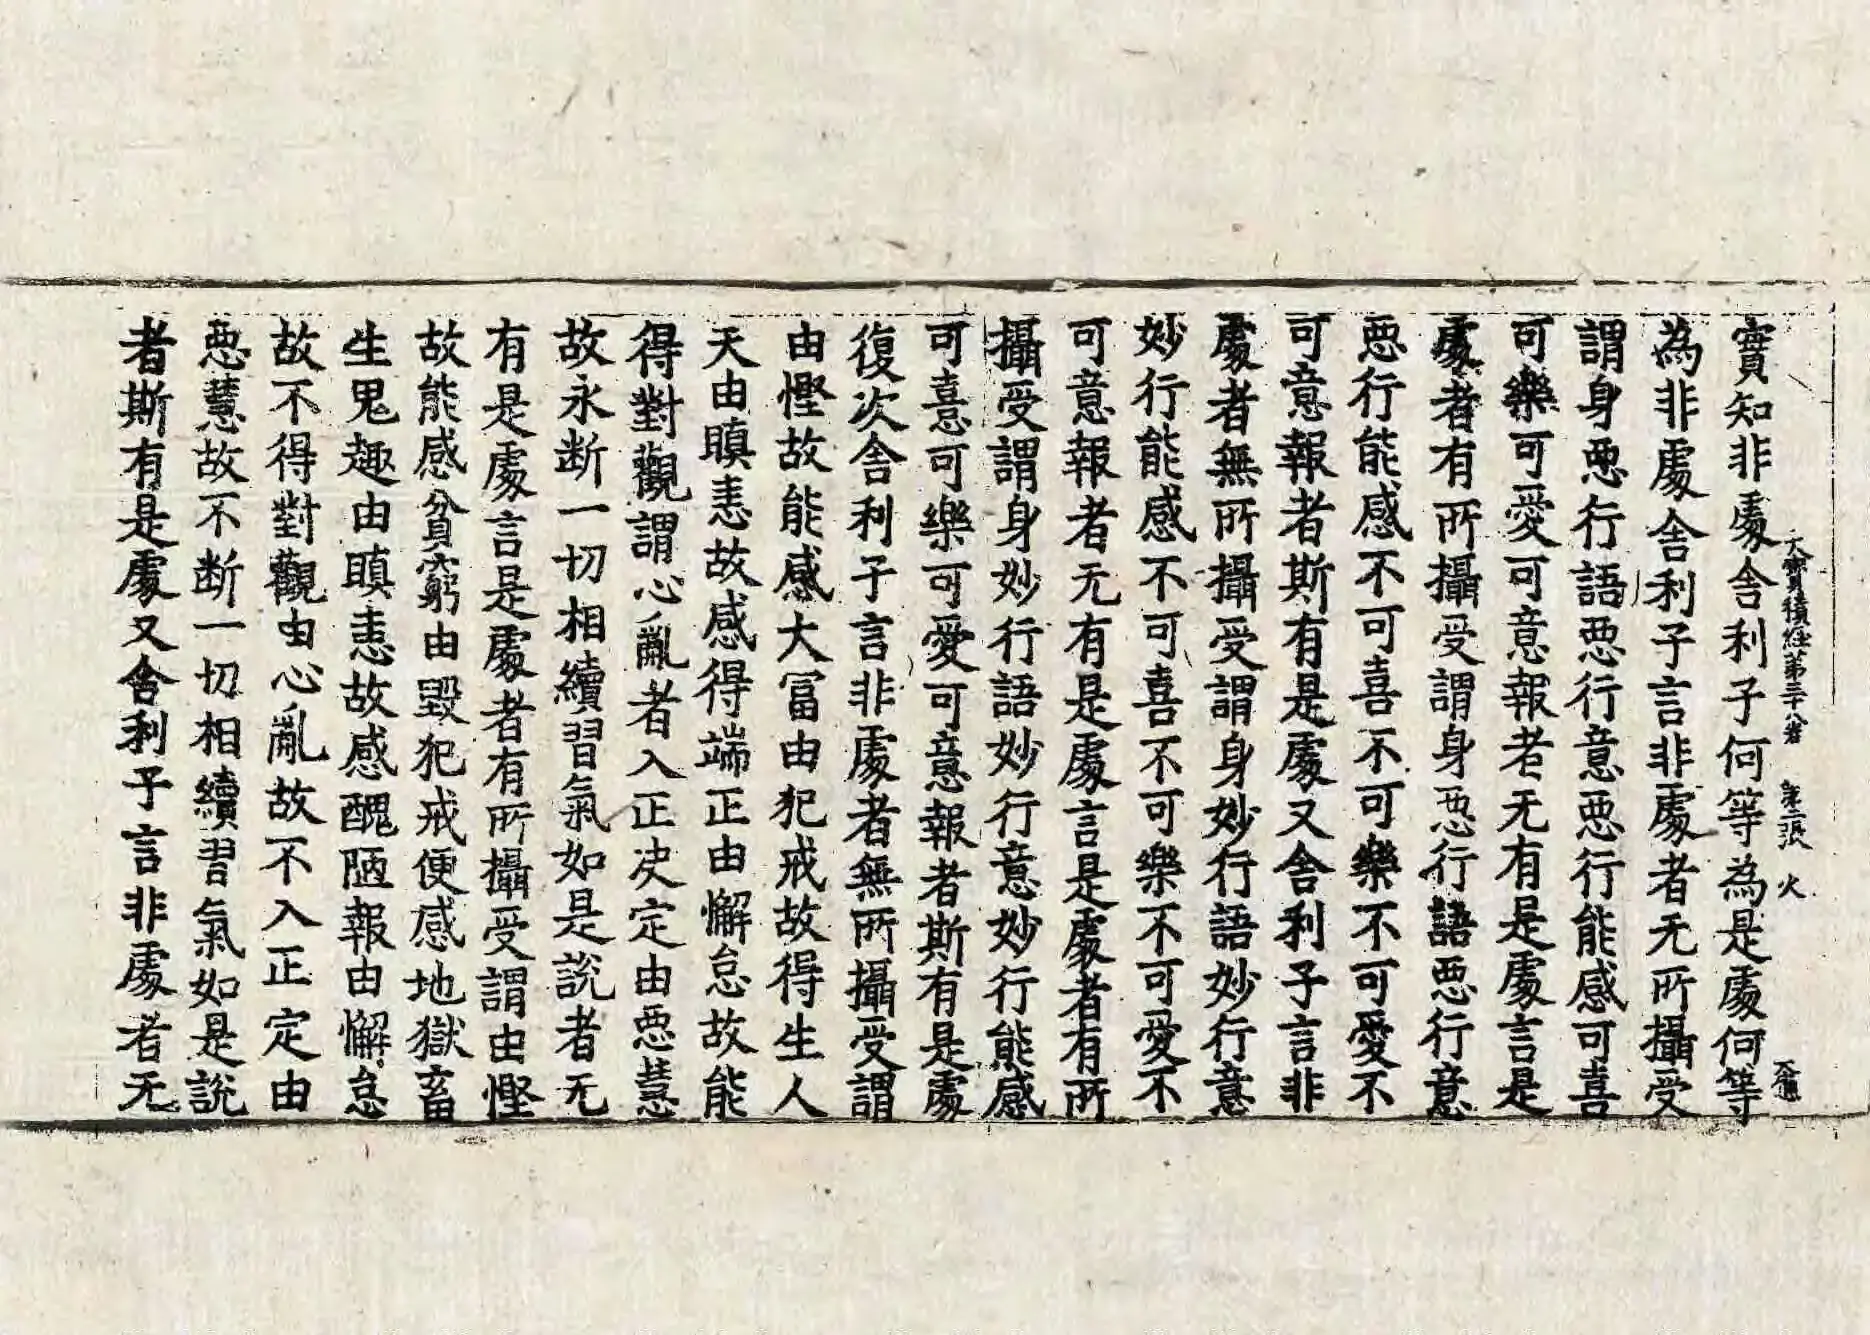 大寶積經第三十八卷 第二張 火
實知非處舍利子何等為是處何等
為非處舍利子言非處者无所攝受
謂身惡行語惡行意惡行能感可喜
可樂可愛可意報者无有是處言是
處者有所攝受謂身惡行語惡行意
惡行能感不可喜不可樂不可愛不
可意報者斯有是處又舍利子言非
處者無所攝受謂身妙行語妙行意
妙行能感不可喜不可樂不可愛不
可意報者无有是處言是處者有所
攝受謂身妙行語妙行意妙行能感
可憙可樂可愛可意報者斯有是處
復次舍利子言非處者無所攝受謂
由慳故能感大冨由犯戒故得生人
天由瞋恚故感得端正由懈怠故能
得對觀謂心亂者入正决定由惡慧
故永断一切相續習氣如是說者无
有是處言是處者有所攝受謂由慳
故能感貧窮由毀犯戒便感地獄畜
生鬼趣由瞋恚故感醜陋報由懈怠
故不得對觀由心亂故不入正定由
惡慧故不断一切相續習氣如是說
者斯有是處又舍利子言非處者无